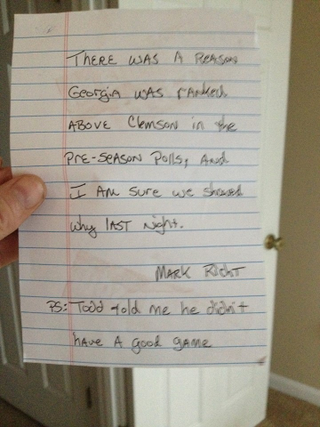 THERE WAS A REASON
Georgia WAS ranked
ABOVE Clemson in the
PRE-SEASON Polls, And
I AM sure we showed
why LAST night.
MARK RICHT
PS: Todd told me he didn't
have A good game